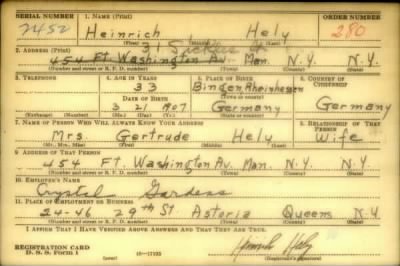 SERIAL NUMBER 1. NAME (Print) ORDER NUMBER
2452 Heinrich Hely 280
(First) (Middle) (Last)
31 Sickles St
2. ADDRESS (Print)
454 Ft. Washington Av. Man. N.Y. N.Y.
(Number and street or R. F. D. number) (Town) (County) (State)
3. TELEPHONE 4. AGE IN YEARS 5. PLACE OF BIRTH 6. COUNTRY OF CITIZENSHIP
33 Bingen Rheinhessen
DATE OF BIRTH (Town or county)
3 21 1907 Germany Germany
(Exchange) (Number) (Mo.) (Day) (Yr.) (State or country)
7. NAME OF PERSON WHO WILL ALWAYS KNOW YOUR ADDRESS 8. RELATIONSHIP OF THAT PERSON
Mrs. Gertrude Hely Wife
(Mr., Mrs., Miss) (First) (Middle) (Last)
9. ADDRESS OF THAT PERSON
454 Ft. Washington Av. Man. N.Y. N.Y.
(Number and street or R. F. D. number) (Town) (County) (State)
10. EMPLOYER'S NAME
Crystal Gardens
11. PLACE OF EMPLOYMENT OR BUSINESS
24-46 29th St. Astoria Queens N.Y.
(Number and street or R. F. D. number) (Town) (County) (State)
I AFFIRM THAT I HAVE VERIFIED ABOVE ANSWERS AND THAT THEY ARE TRUE.
REGISTRATION CARD
D. S. S. Form 1 16—17105 Heinrich Hely